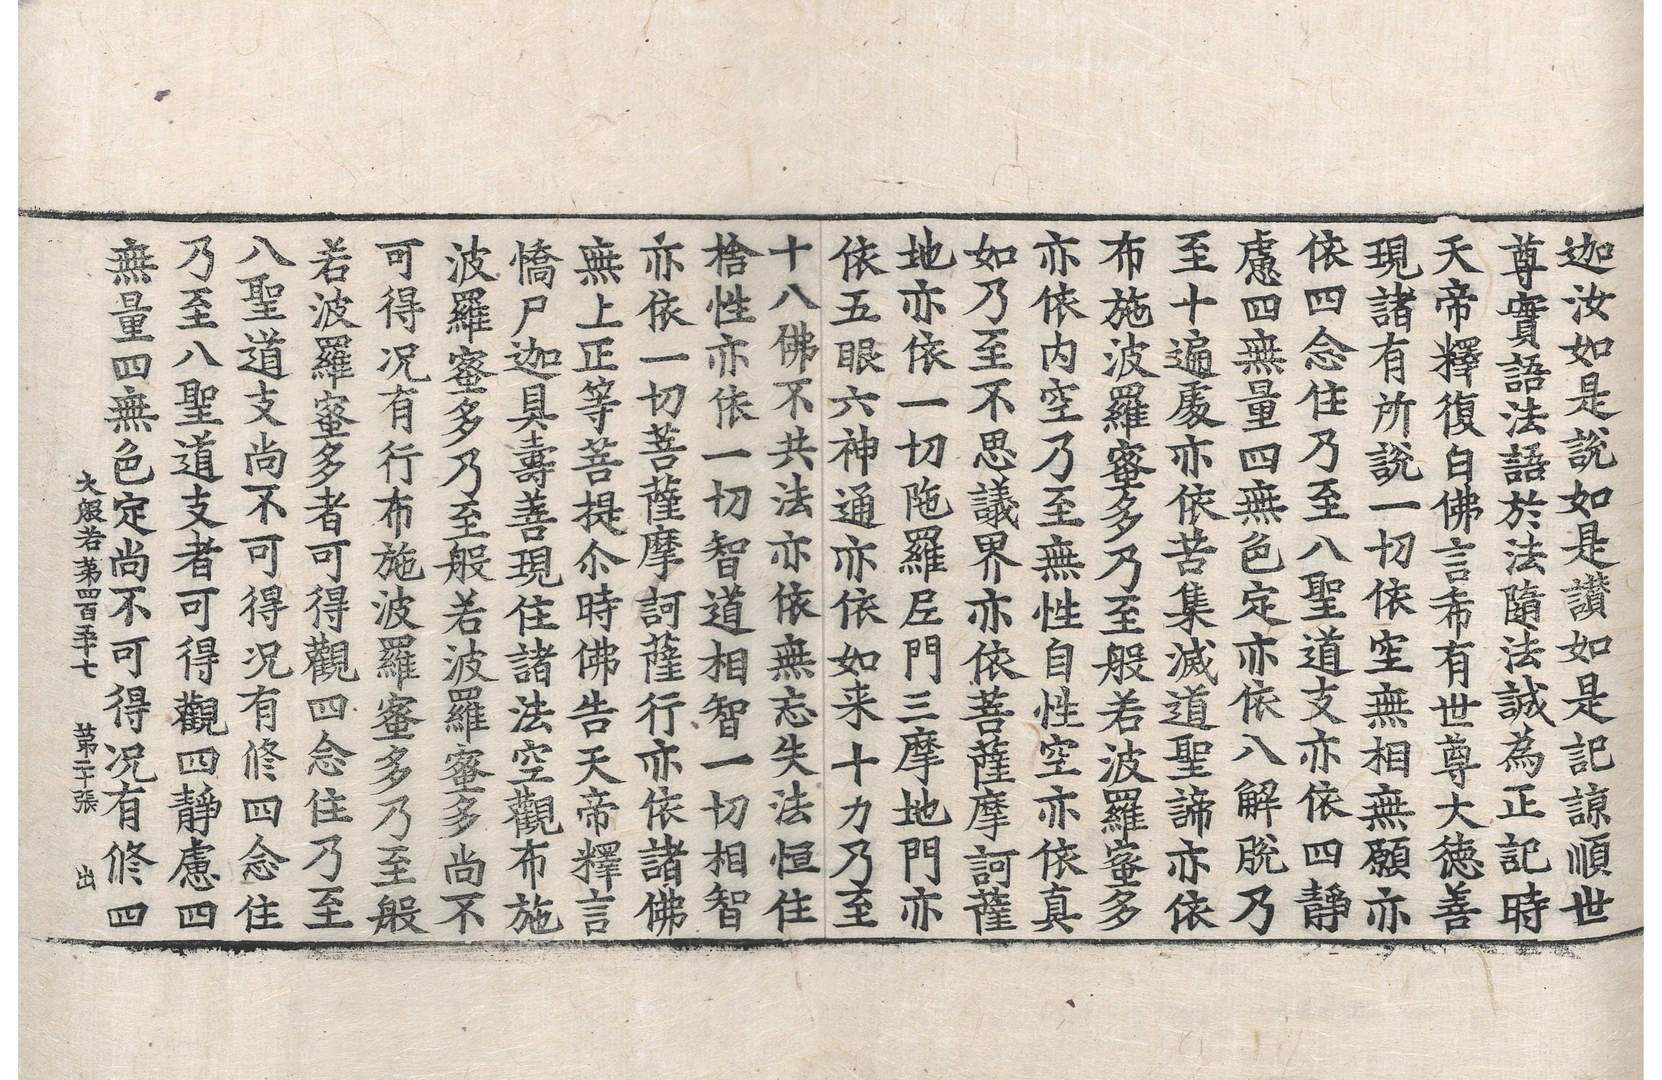 迦汝如是說如是讃如是記諒順世
尊實語法語於法隨法誠為正記時
天帝釋復白佛言希有世尊大徳善
現諸有所說一切依空無相無願亦
依四念住乃至八聖道支亦依四靜
慮四無量四無色定亦依八解脫乃
至十遍處亦依苦集滅道聖諦亦依
布施波羅蜜多乃至般若波羅蜜多
亦依内空乃至無性自性空亦依真
如乃至不思議界亦依菩薩摩訶薩
地亦依一切陁羅尼門三摩地門亦
依五眼六神通亦依如来十力乃至
十八佛不共法亦依無忘失法恒住
捨性亦依一切智道相智一切相智
亦依一切菩薩摩訶薩行亦依諸佛
無上正等菩提尒時佛告天帝釋言
憍尸迦具壽善現住諸法空觀布施
波羅蜜多乃至般若波羅蜜多尚不
可得况有行布施波羅蜜多乃至般
若波羅蜜多者可得觀四念住乃至
八聖道支尚不可得况有修四念住
乃至八聖道支者可得觀四靜慮四
無量四無色定尚不可得况有修四
大般若第四百五十七 第二十張 出